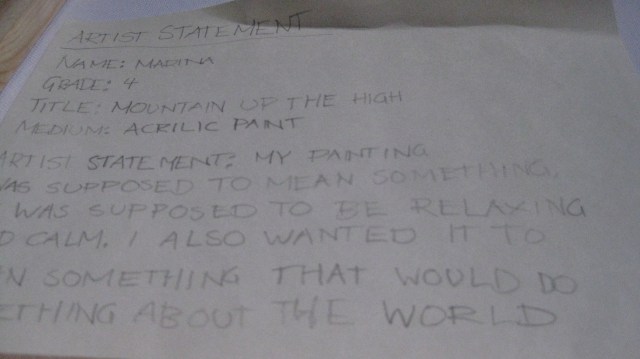 ARTIST STATEMENT
NAME: MADINA
GRADE: 4
TITLE: MOUNTAIN UP THE HIGH
MEDIUM: ACRILIC PAINT
ARTIST STATEMENT: MY PAINTING
WAS SUPPOSED TO MEAN SOMETHING.
WAS SUPPOSED TO BE RELAXING
CALM. I ALSO WANTED IT TO
SOMETHING THAT WOULD DO
ABOUT THE WORLD